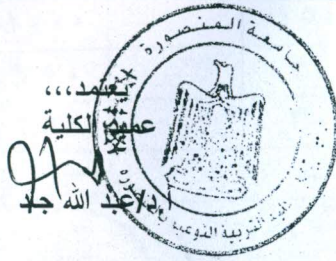 يعتمد,,,
عميد الكلية
أ.د/عبد الله جاد
جامعة المنصورة
كلية التربية النوعية